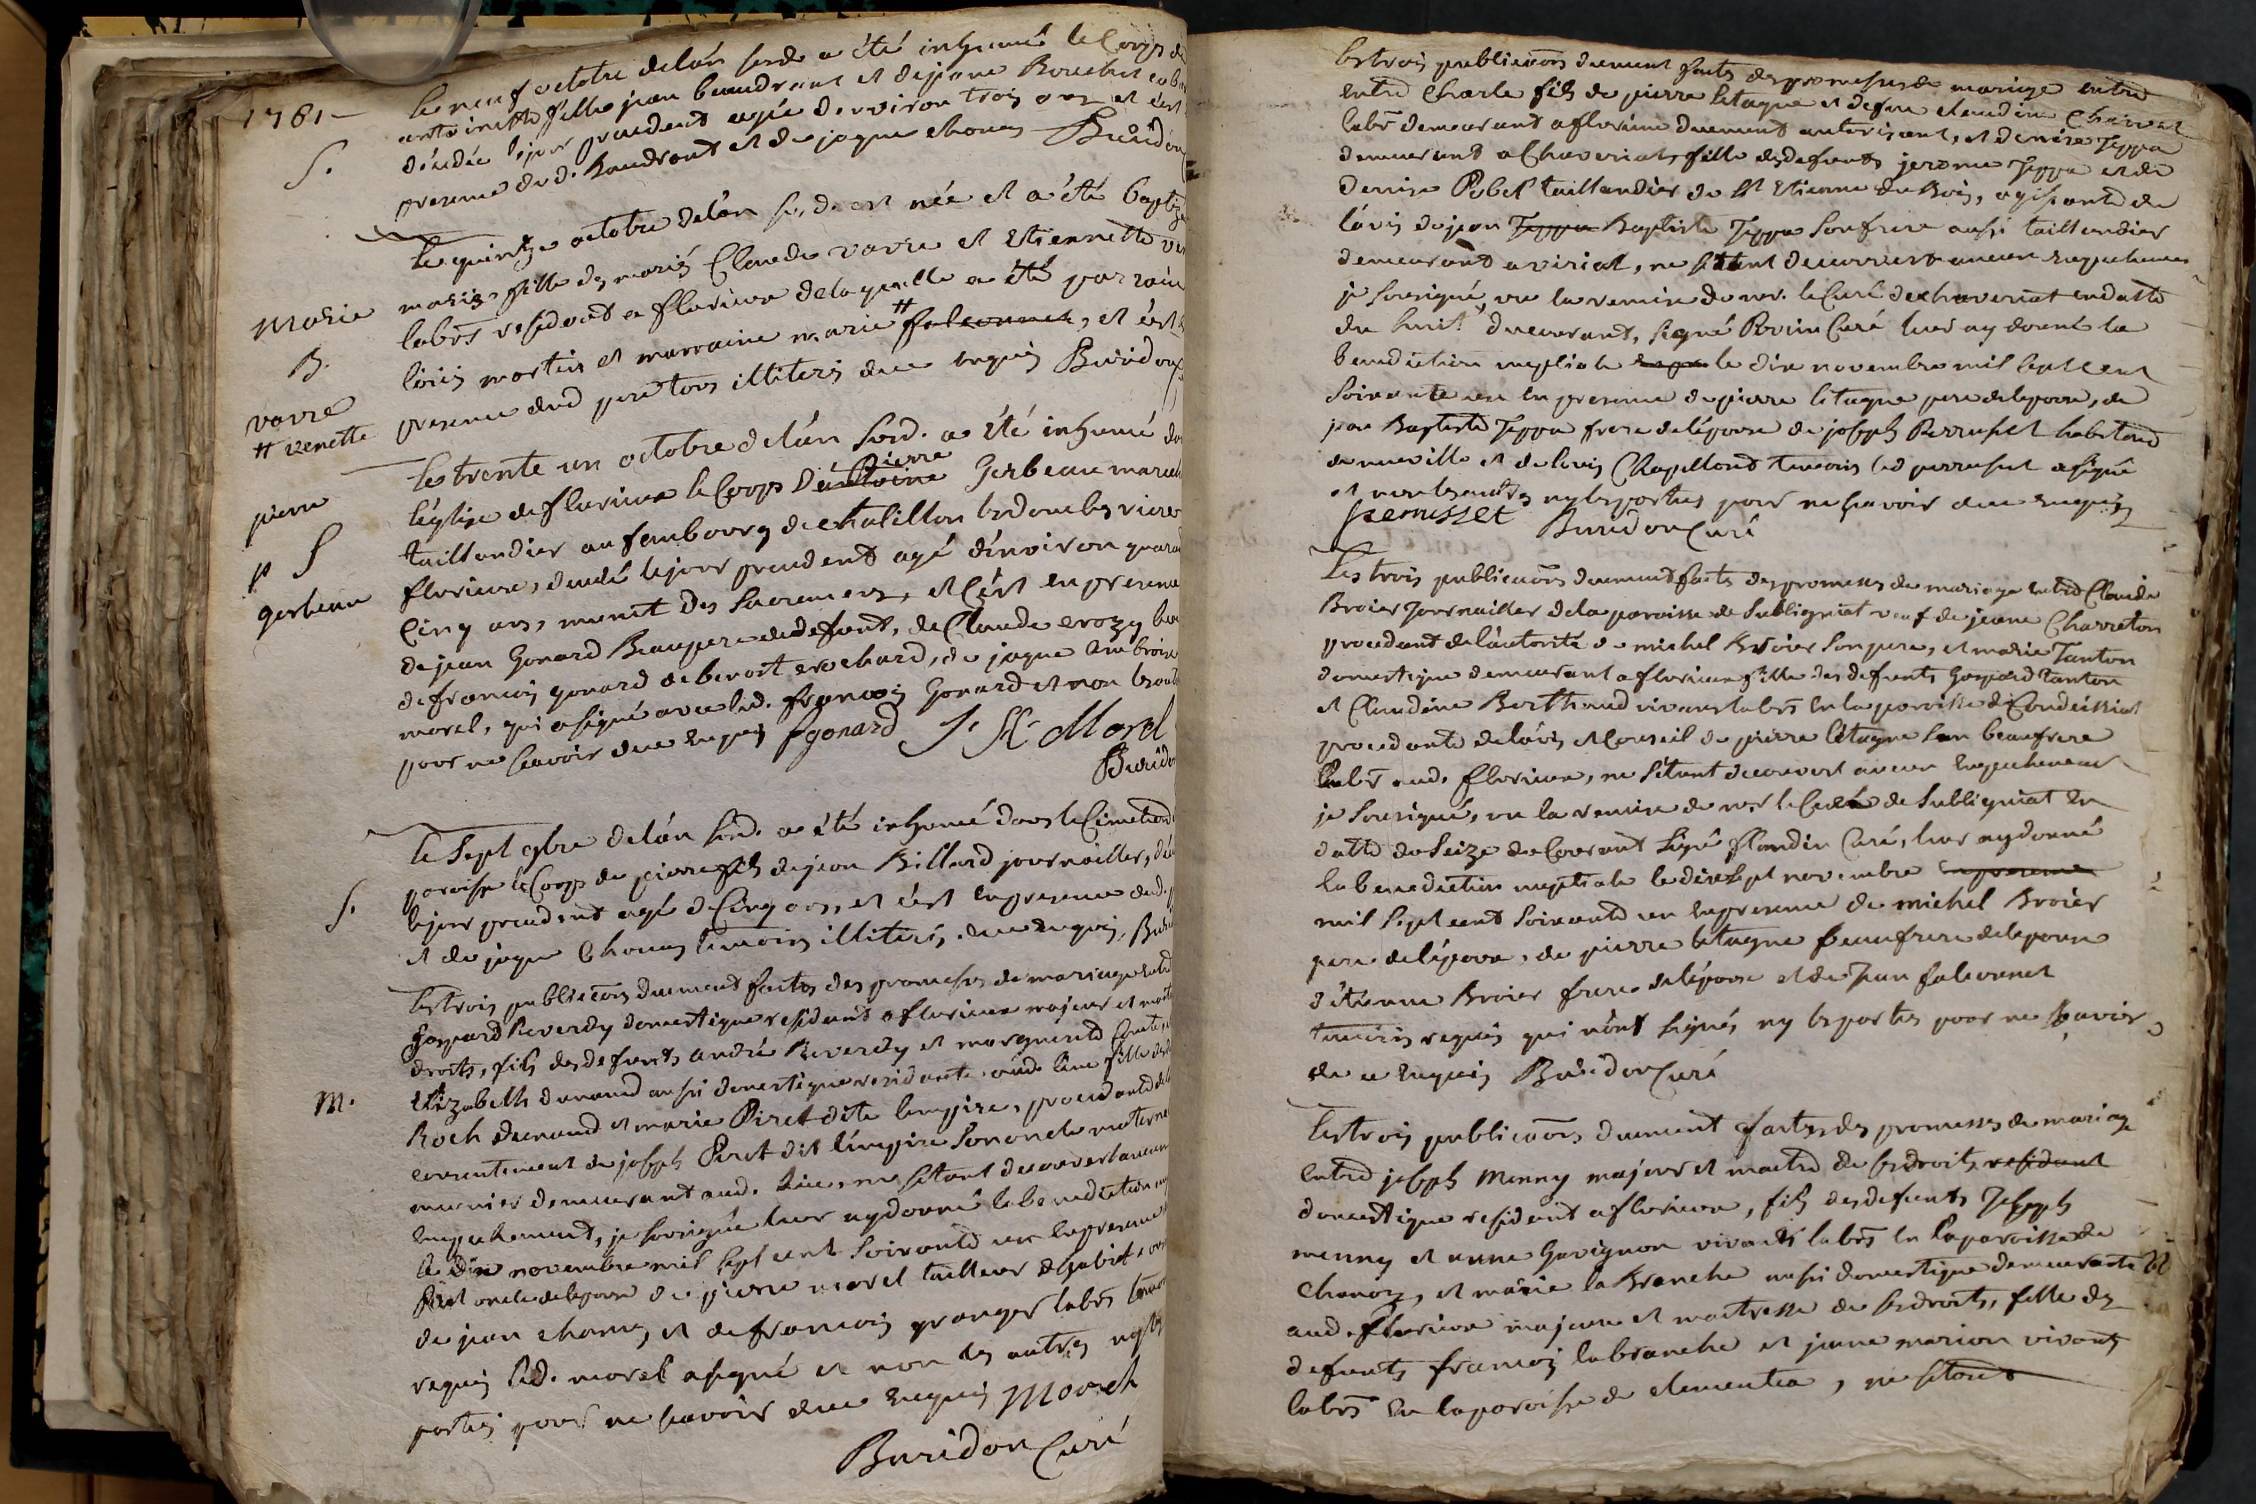 1761 –
Le neuf octobre de l'an susd. a été inhumé le Corps de
fille jean beaudrant et de jeane
décédée le jour precedent agée d'environ trois ans et c'est
presence dud. Baudrant et de jaque chanay Buridon
S.
Le quinze octobre de l'an susd. est née et a été baptizée
marie fille des mariés Claude varre et Etiennette
labrs residant a fleurieux de laquelle a été parrain
louis martin et marraine marie # falconnet, et c'est
presence dud pere tous illiterés de ce enquis Buridon
Marie
B.
varre
# venette
Le trente un octobre de l'an susd. a été inhumé dans
l'église de fleurieux le Corps d'antoine pierre Gerbeau
taillandier au fanbourg de chatillon les dombes
fleurieux, decedé le jour precedent agé d'environ quarante
Cinq ans, munit des Sacremens, et c'est en presence
de jean Gonard Beaupere dud defunt, de Claude
de francois gonard de benoit brochard, de jaque Ambroise
morel, qui a signé avec led. francois Gonard et non les autres
pour ne scavoir de ce enquis fgonard J. A. Morel
Buridon
pierre
S
gerbeau
Le sept 9bre de l'an susd. a été inhumé dans le Cimetiere
paroisse le Corps de pierre fils de jean Billard journaillier, décédé
le jour precedent agé de Cinq ans, et c'est en presence dud.
et de jaque Chanay temoins illiterés, de ce enquis, Buridon
S.
Les trois publicaons duement faites des promesses de mariage entre
Gaspard Reverdy domestique residant a fleurieux majeur et maitre
droits, fils des defunts andré Reverdy et marguerite
Elizabeth durand aussi domestique residante aud. lieu fille
Roch durand et marie Piret dite lempire, procedante
consentement de joseph Piret dit l'empire son oncle maternel
meunier demeurant aud. lieu, ne s'etant decouvert aucun
empechement, je soussigné leur ay donné la benediction
le dix novembre mil sept cent soixante un en presence
Piret oncle de lepouse de pierre morel tailleur d'habit
de jean chanay et de francois granger labrs temoins
requis led. morel a signé et non les autres ny les
parties pour ne scavoir de ce enquis Morel
Buridon Curé
M.
Les trois publicaons duement faites des promesses de mariage entre
entre Charle fils de pierre letague et de feue claudine
labr demeurant a fleurieux duement autorisant, et denise Jeppa
demeurant a Chaveriat, fille des defunts jerome Jeppa et de
denise Pobel taillandier de St Etienne du Bois, agissante de
l'avis de jean Jeppa Baptiste Jeppa son frere aussi taillandier
demeurant a viriat, ne s'étant decouvert aucun empechement
je sousigné, vu la remise de mr. le Curé de chaveriat en datte
du huit du courant, signé Curé leur ay donné la
benediction nuptiale le dix novembre mil sept cent
soixante un en presence de pierre letague pere de lepoux, de
jean Baptiste Jeppa frere de l'épouse de joseph Perrusset habitant
de neuville et de louis Chapelland temoins led perrusset a signé
et non les autres ny les parties pour ne scavoir de ce enquis
perrusset Buridon Curé
Les trois publicaons duement faites des promesses de mariage entre Claude
Broier Journaillier de la paroisse de Subligniat veuf de jeane Charreton
procedant de l'autorité de michel Broier son pere, et marie Tanton
domestique demeurant a fleurieux fille des defunts Gaspard Tanton
et Claudine Berthaud vivans labrs en la paroisse de Condeissiat
procedante de l'avis et Conseil de pierre létague son beaufrere
labr aud. fleurieux, ne s'étant decouvert aucun empechement
je sousigné, vu la remise de mr le Curé de Subligniat en
datte du Seize du Courant signé flandin Curé, leur ay donné
la benediction nuptiale le dix sept novembre en presence
mil sept cent soixante un en presence de michel Broier
pere de l'époux, de pierre letague beaufrere de lepouse
d'étienne Broier frere de l'époux et de Jean falconnet
temoins requis qui n'ont signés ny les parties pour ne scavoir
de ce enquis Buridon Curé
Les trois publicaons duement faites des promesses de mariage
entre joseph Menny majeur et maitre de ses droits residant
domestique residant a fleurieux, fils des defunts Joseph
menny et anne Gavignon vivants labrs en la paroisse de
Chanoz, et marie la Branche aussi domestique demeurante
aud. fleurieux majeure et maitresse de ses droits, fille des
defunts francois labranche et jeane marion vivants
labrs en la paroisse de clementia, ne s'étant